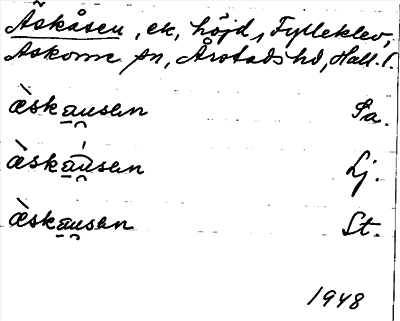 Äskåsen, ek, höjd, Fylleklev,
Askome sn, Årstads hd, Hall. l.
æ̀skau̯sen Sa.
æ̀skáu̯sen Lj.
æ̀skau̯sen St.
1948